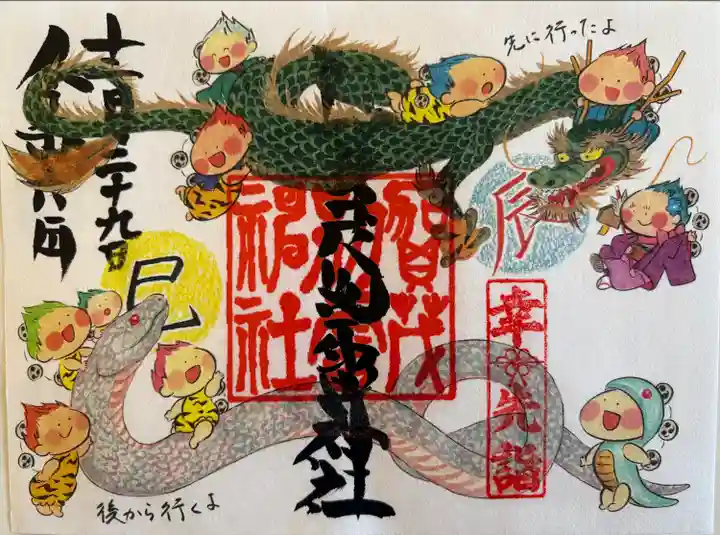 先に行ったよ
辰
幸先詣
賀茂
別雷
神社
別雷神社
十二月二十九日
巳
後から行くよ